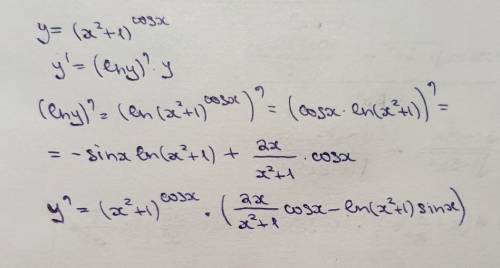 y = (x²+1)^cosx
y' = (lny)' · y
(lny)' = (ln(x²+1)^cosx)' = (cosx · ln(x²+1))' =
= -sinx ln(x²+1) + 2x/(x²+1) · cosx
y' = (x²+1)^cosx · (2x/(x²+1) cosx - ln(x²+1) sinx)